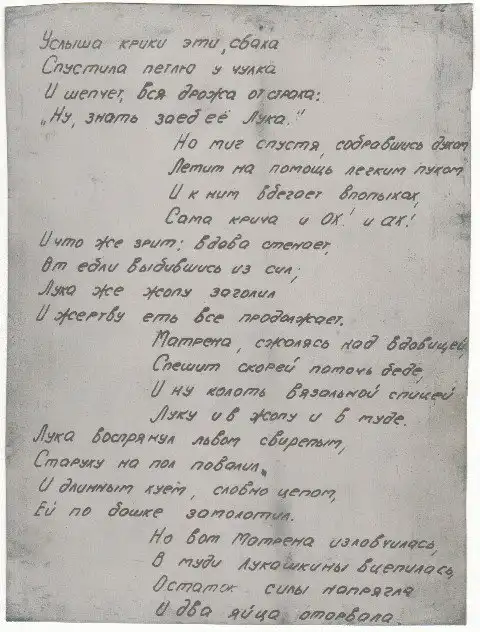 Услыша крики эти, сваха
Спустила петлю у чулка
И шепчет, вся дрожа от страха:
„Ну, знать заеб её Лука."
Но миг спустя, собравшись духом
Летит на помощь легким пухом
И к ним вбегает впопыхах,
Сама крича и ОХ! и ах!
И что же зрит: вдова стенает,
От ебли выбившись из сил;
Лука же жопу заголил
И жертву еть все продолжает.
Матрена, сжалясь над вдовицей,
Спешит скорей помочь беде,
И ну колоть вязальной спицей
Луку и в жопу и в муде.
Лука воспрянул львом свирепым,
Старуху на пол повалил,
И длинным хуем, словно цепом,
Ей по башке замолотил.
Но вот Матрена изловчилась,
В муди Лукашкины вцепилась,
Остаток силы напрягла
И два яйца оторвала.